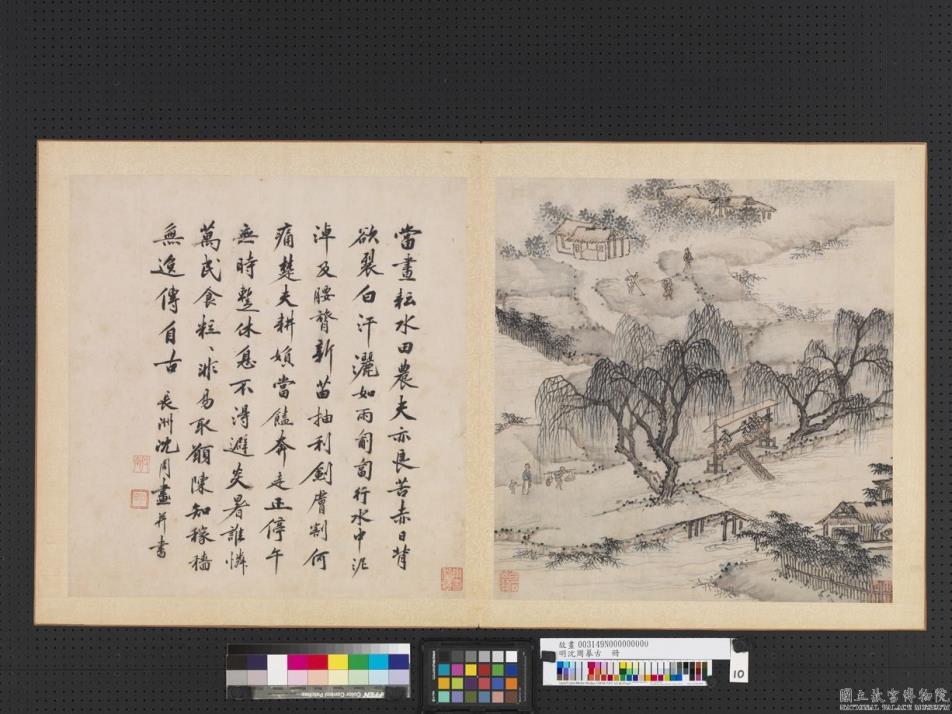 當晝耘水田農夫亦良苦赤日背
欲裂白汗灑如雨匍匐行水中泥
淖及腰膂新苗抽利劍膚割何
痛楚夫耕婦當饁奔走正停午
無時暫休息不得避炎暑誰憐
萬民食粒〻非易取願陳知稼穡
無逸傳自古 長洲沈周畫并書
故畫 003149N000000000
明沈周摹古 冊
10
TIFFEN Color Control Patches
國立故宮博物院
NATIONAL PALACE MUSEUM